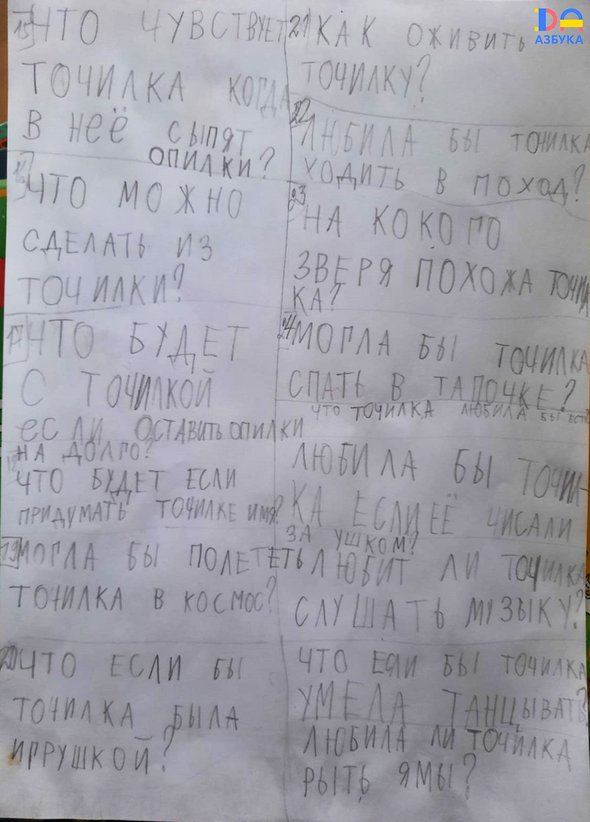 15 ЧТО ЧУВСТВУЕТ
ТОЧИЛКА КОГДА
В НЕЁ СЫПЯТ
ОПИЛКИ?
ЧТО МОЖНО
СДЕЛАТЬ ИЗ
ТОЧИЛКИ?
17 ЧТО БУДЕТ
С ТОЧИЛКОЙ
ЕСЛИ ОСТАВИТЬ ОПИЛКИ
НА ДОЛГО?
ЧТО БУДЕТ ЕСЛИ
ПРИДУМАТЬ ТОЧИЛКЕ ИМЯ?
19 МОГЛА БЫ ПОЛЕТЕТЬ
ТОЧИЛКА В КОСМОС?
20 ЧТО ЕСЛИ БЫ
ТОЧИЛКА БЫЛА
ИГРУШКОЙ?
21 КАК ОЖИВИТЬ
ТОЧИЛКУ?
22 ЛЮБИЛА БЫ ТОЧИЛКА
ХОДИТЬ В ПОХОД?
23 НА КОКОГО
ЗВЕРЯ ПОХОЖА ТОЧИЛ
КА?
24 МОГЛА БЫ ТОЧИЛКА
СПАТЬ В ТАПОЧКЕ?
ЧТО ТОЧИЛКА ЛЮБИЛА БЫ ЕСТЬ
ЛЮБИЛА БЫ ТОЧИЛ-
КА ЕСЛИ ЕЁ ЧИСАЛИ
ЗА УШКОМ?
ЛЮБИТ ЛИ ТОЧИЛКА
СЛУШАТЬ МУЗЫКУ?
ЧТО ЕСЛИ БЫ ТОЧИЛКА
УМЕЛА ТАНЦЫВАТЬ?
ЛЮБИЛА ЛИ ТОЧИЛКА
РЫТЬ ЯМЫ?
DA
АЗБУКА